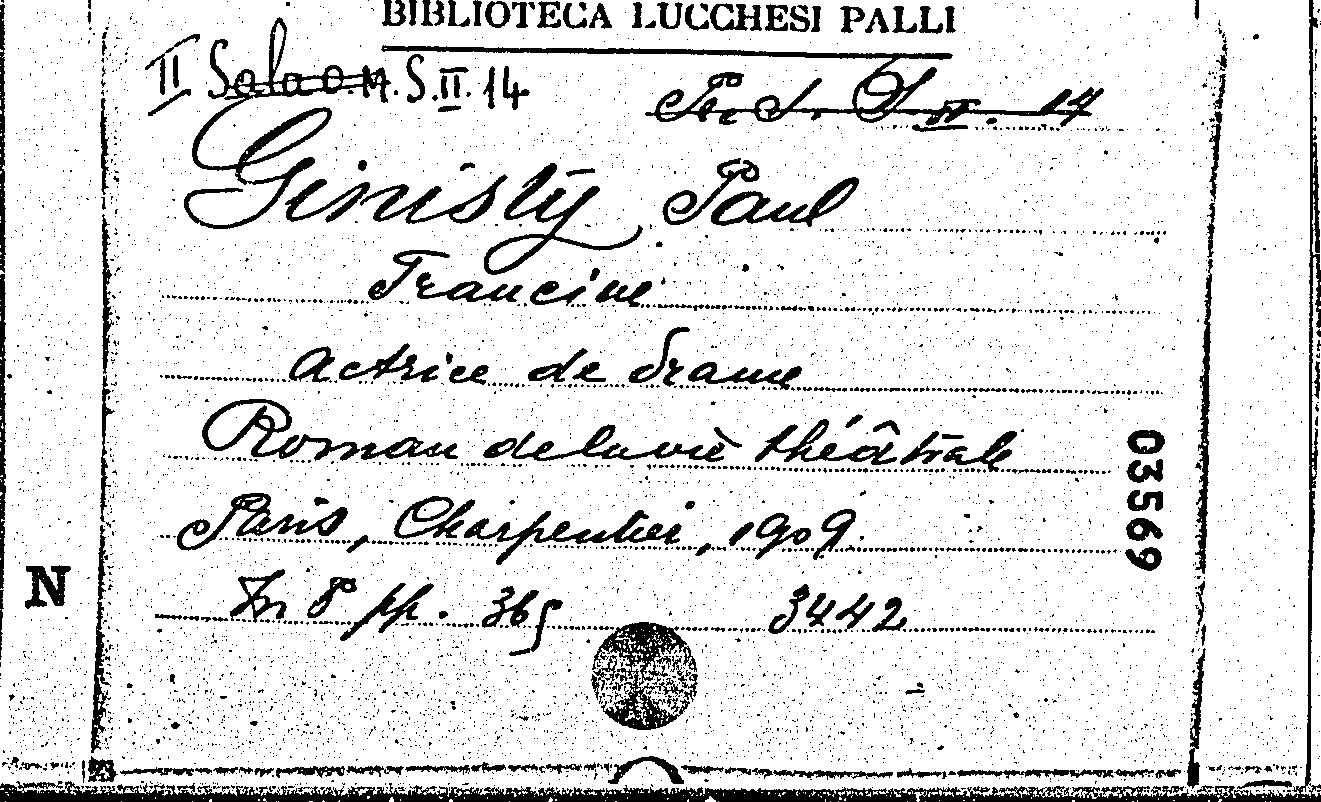 BIBLIOTECA LUCCHESI PALLI
II Sala O.M. S.II. 14
S. II. 14
Ginisty, Paul
Francine
actrice de drame
Roman de la vie théâtrale
Paris, Charpentier, 1909.
In 8° pp. 365 3442
03569
N